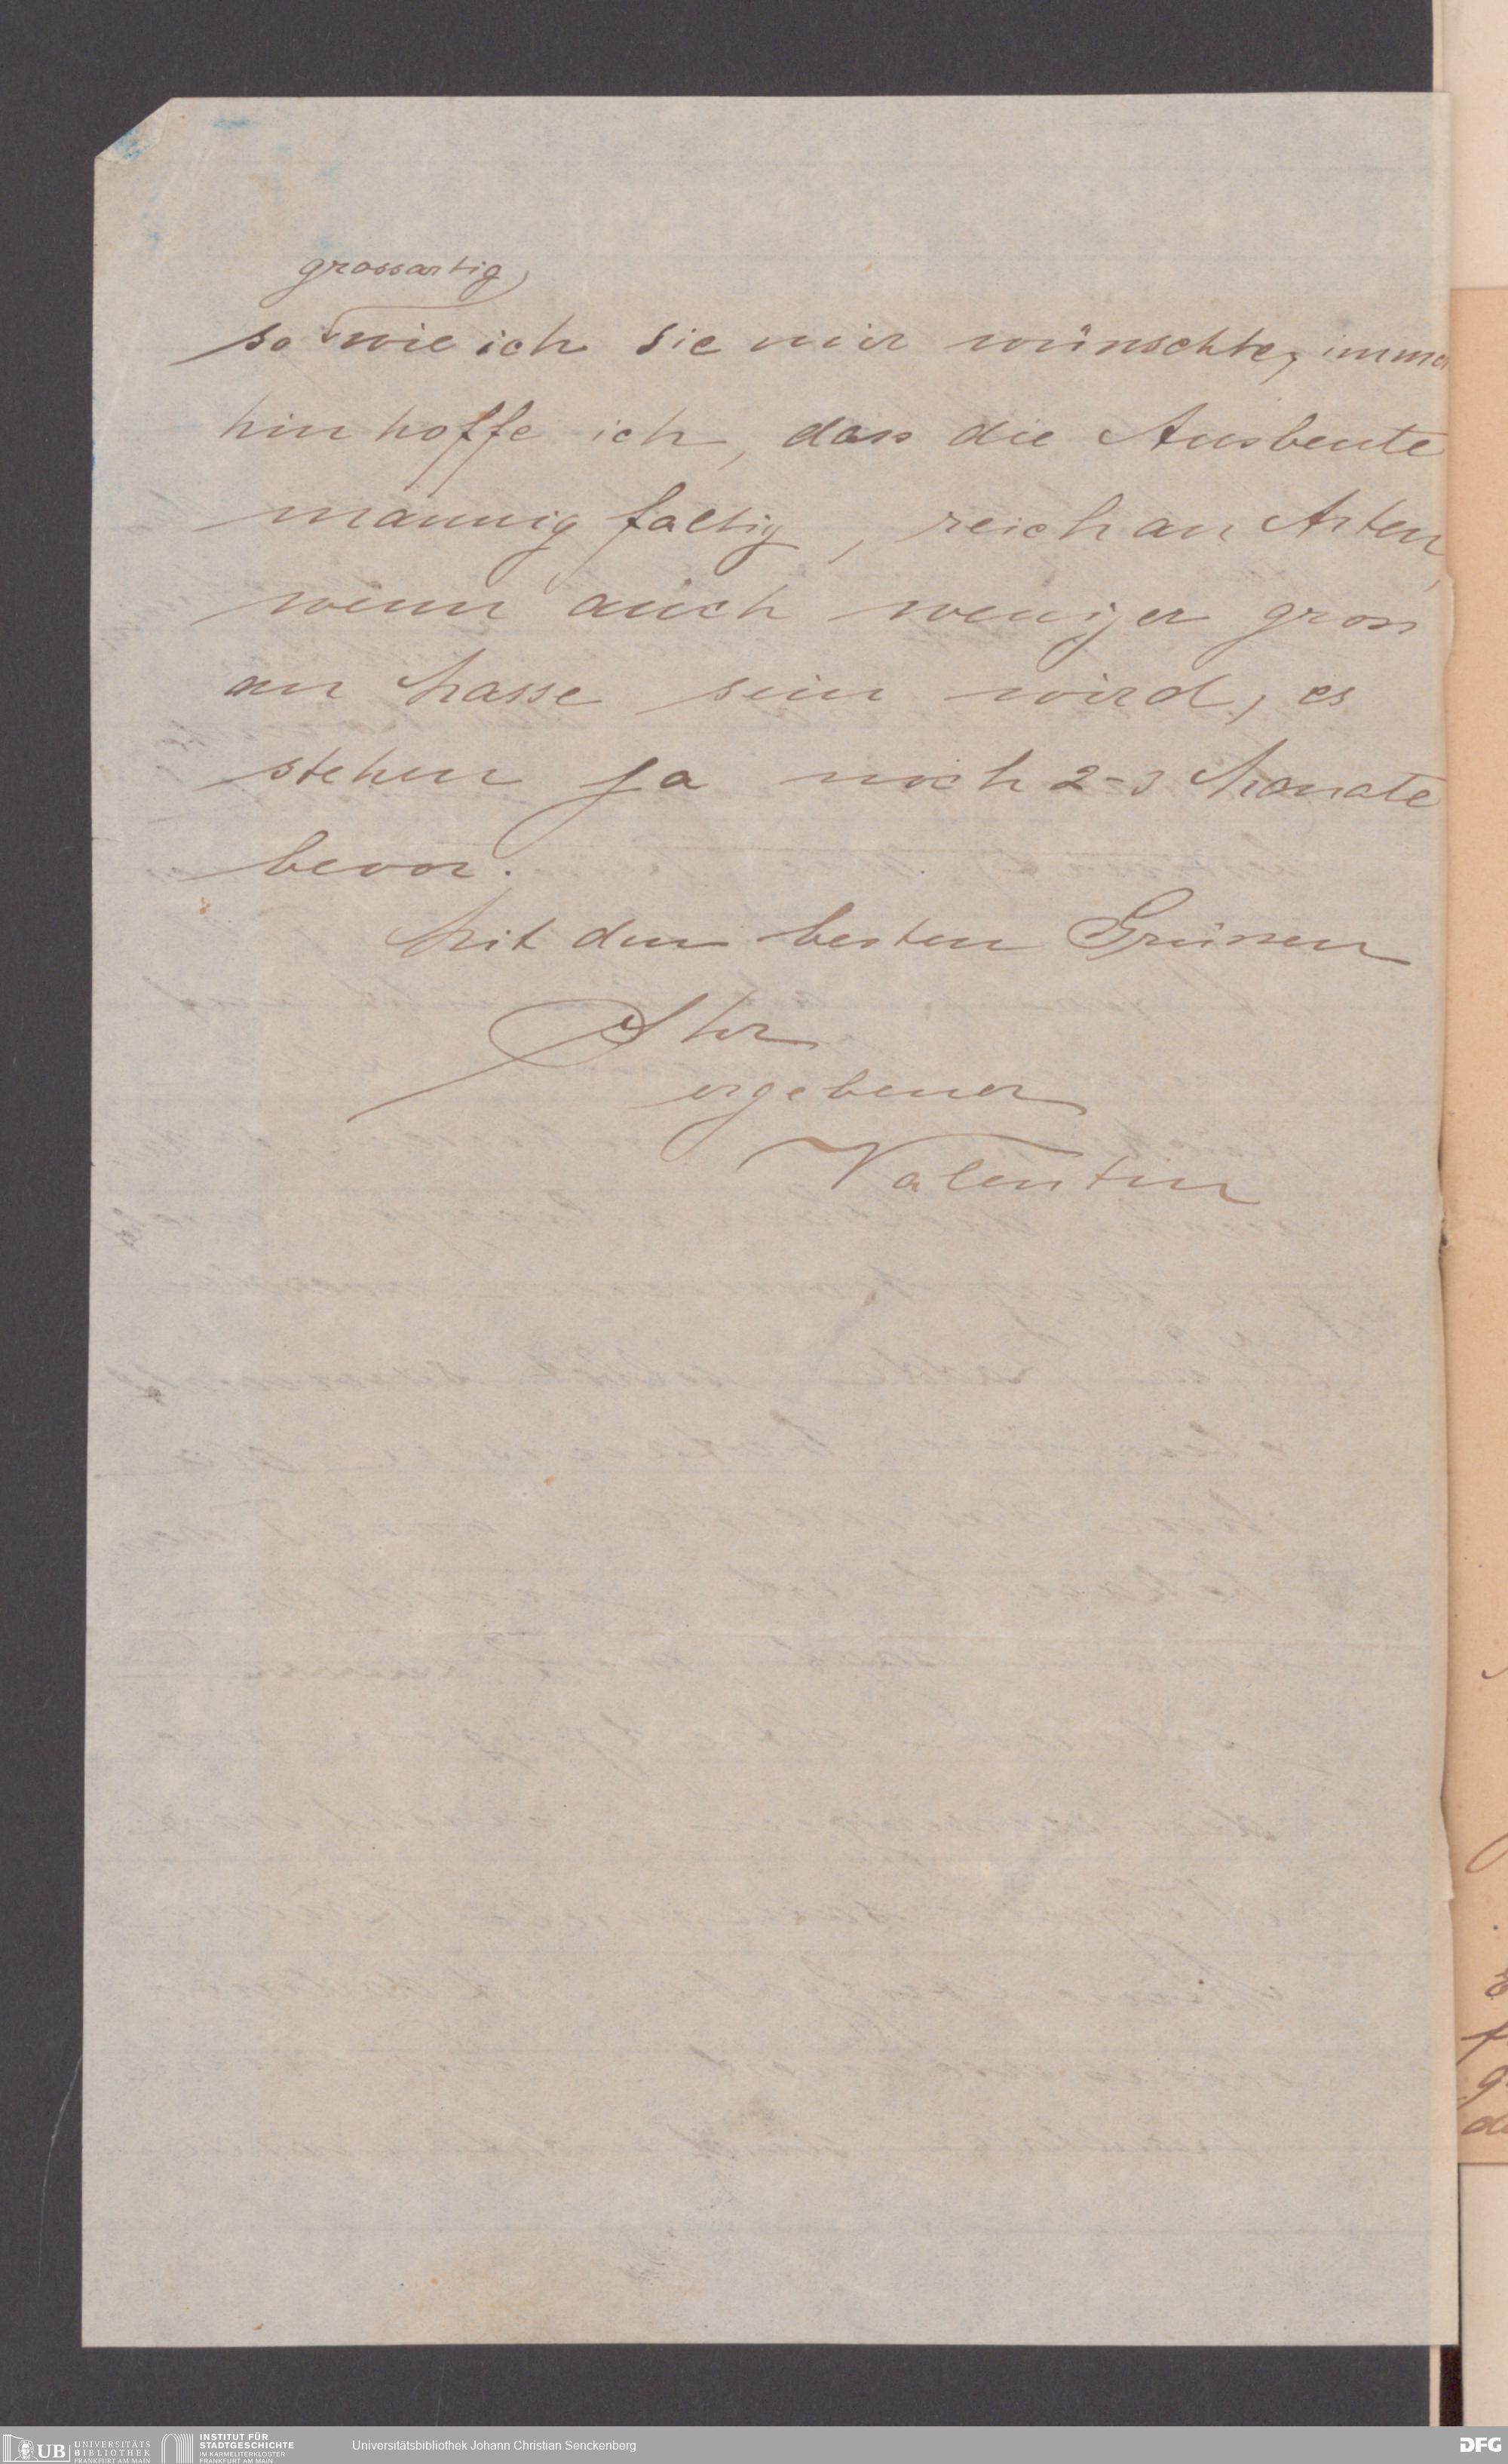 grossartig
so wie ich sie mir wünschte, immer
hin hoffe ich, dass die Ausbeute
mannig faltig, reich an Arten,
wenn auch weniger gross
an Masse sein wird, es
stehen ja noch 2-3 Monate
bevor.
Mit den besten Grüssen
Ihr
ergebener
Valentin
UB UNIVERSITÄTS
BIBLIOTHEK
FRANKFURT AM MAIN
INSTITUT FÜR
STADTGESCHICHTE
IM KARMELITERKLOSTER
FRANKFURT AM MAIN
Universitätsbibliothek Johann Christian Senckenberg
DFG